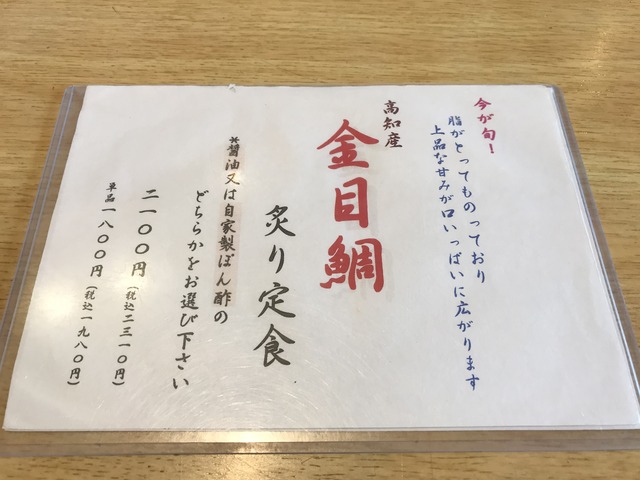 今が旬!
脂がとってものっており
上品な甘みが口いっぱいに広がります
高知産
金目鯛
炙り定食
*醤油又は自家製ぽん酢の
どちらかをお選び下さい
二一〇〇円(税込二三一〇円)
単品一八〇〇円(税込一九八〇円)